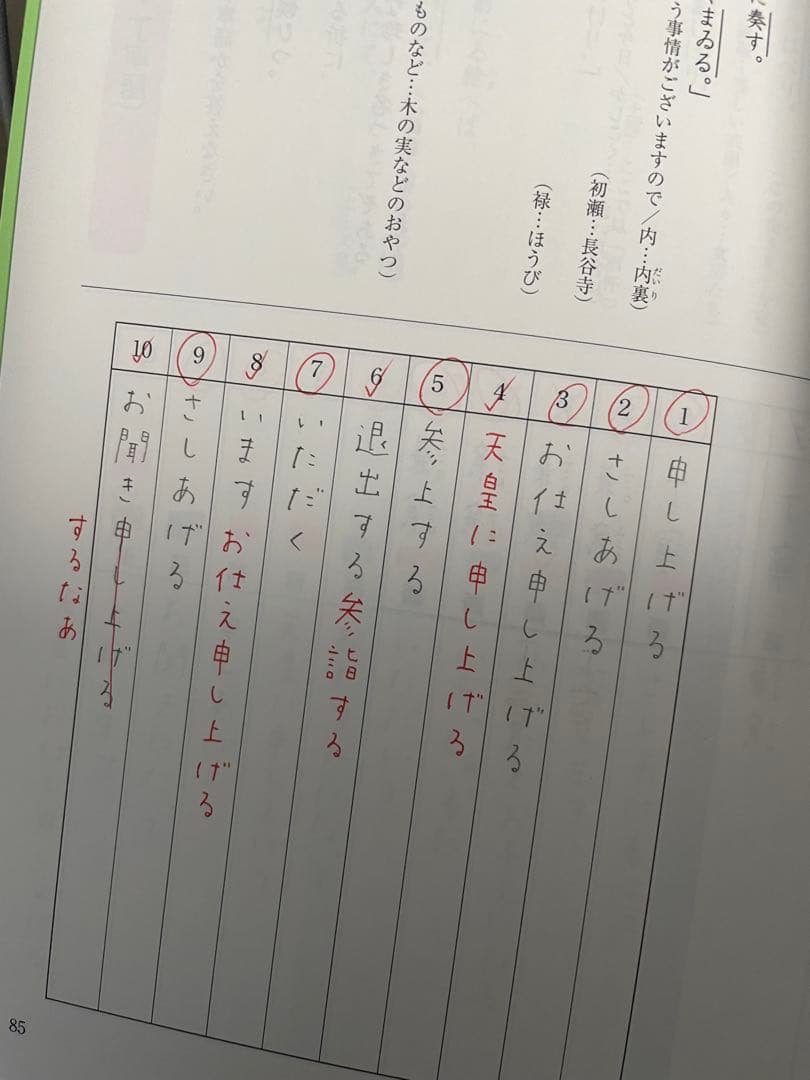 に奏す。
まゐる。」
う事情がございますので／内…内裏）
だいり
（初瀬…長谷寺）
（禄…ほうび）
ものなど…木の実などのおやつ）
1
申し上げる
2
さしあげる
3
お仕え申し上げる
4
天皇に申し上げる
5
参上する
6
退出する参詣する
7
いただく
8
いますお仕え申し上げる
9
さしあげる
10
お聞き申し上げる
するなあ
85